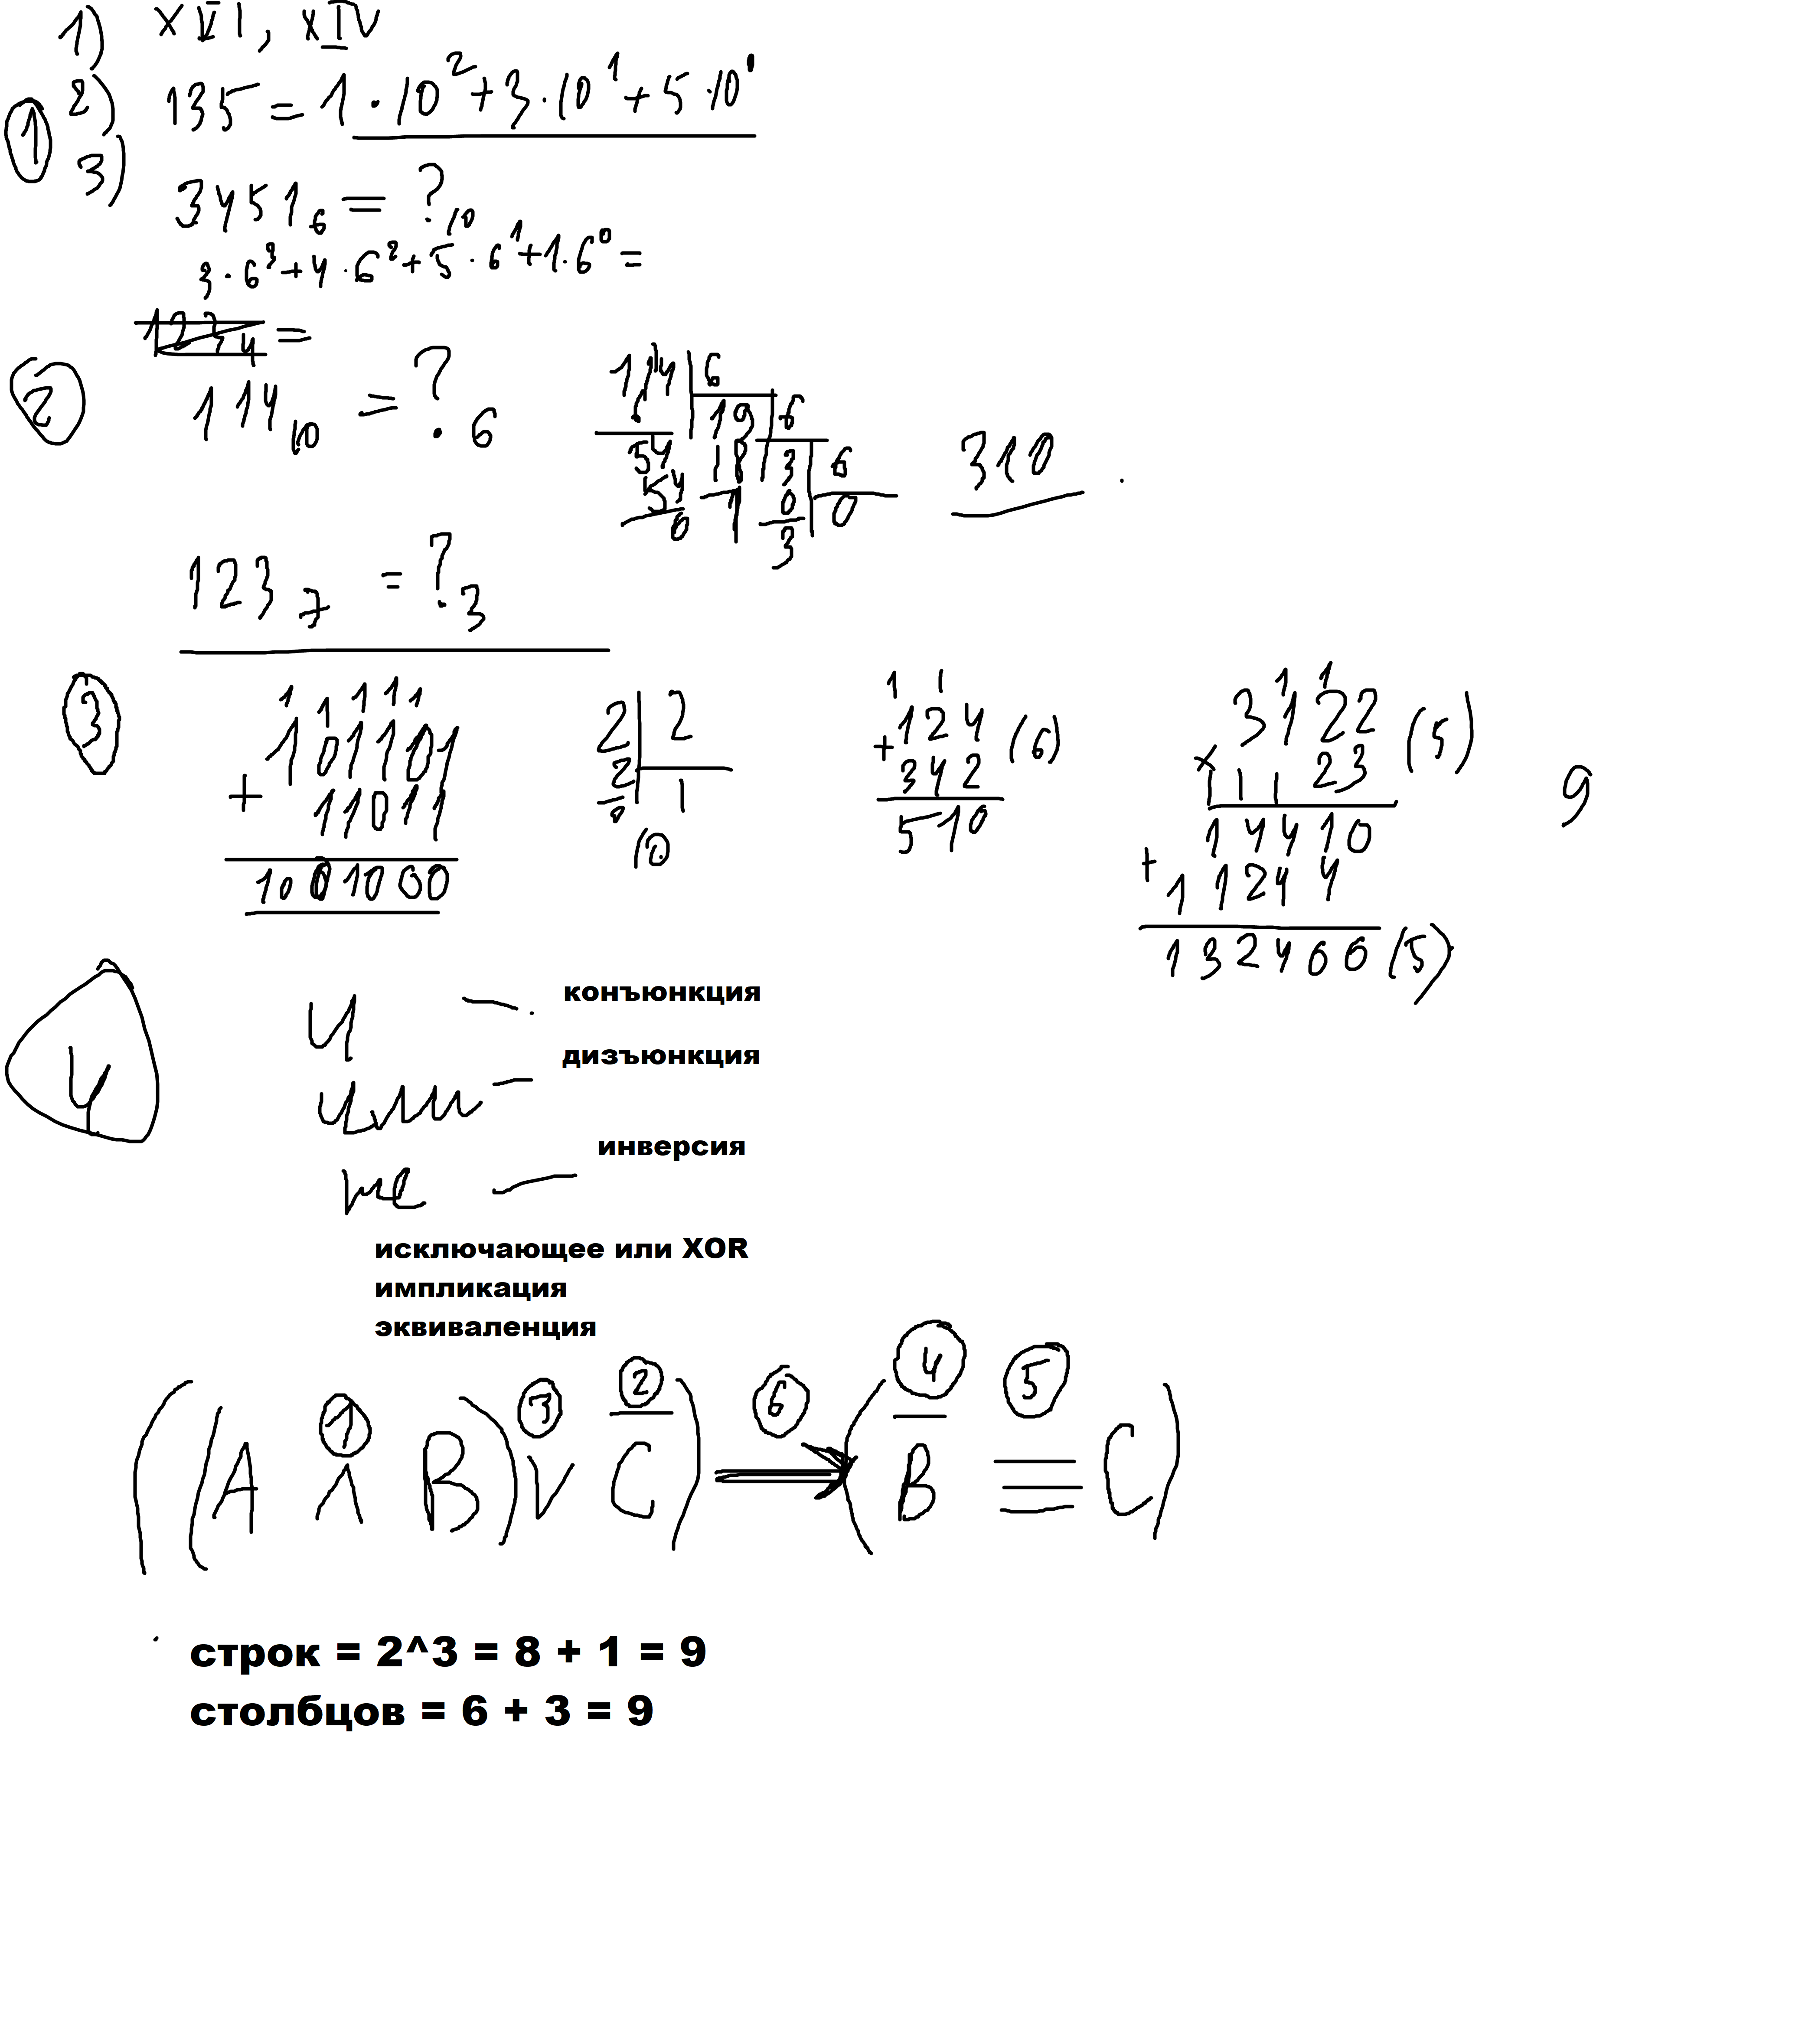 1) XVI, XIV
① 2) 135 = 1 · 10² + 3 · 10¹ + 5 · 10⁰
3)
3451₆ = ?₁₀
3 · 6³ + 4 · 6² + 5 · 6¹ + 1 · 6⁰ =
1234 =
② 114₁₀ = ?₆
114 | 6
6 | 19 | 6
54 | 18 | 3 | 6
54 | 1 | 0 | 0
0 | 3
310
123₇ = ?₃
③
1 1 1 1 1
101101
+ 11011
1001000
2 | 2
2 | 1
0
10
1 1
+ 124 (6)
342
510
1 1
3122 (5)
× 23
1 1 1
14410
+ 11244
132400 (5)
9
④
и — конъюнкция
или — дизъюнкция
не — инверсия
исключающее или XOR
импликация
эквиваленция
① ③ ② ⑥ ④ ⑤
((A ∧ B) ∨ C̅) → (B̅ ≡ C)
строк = 2^3 = 8 + 1 = 9
столбцов = 6 + 3 = 9